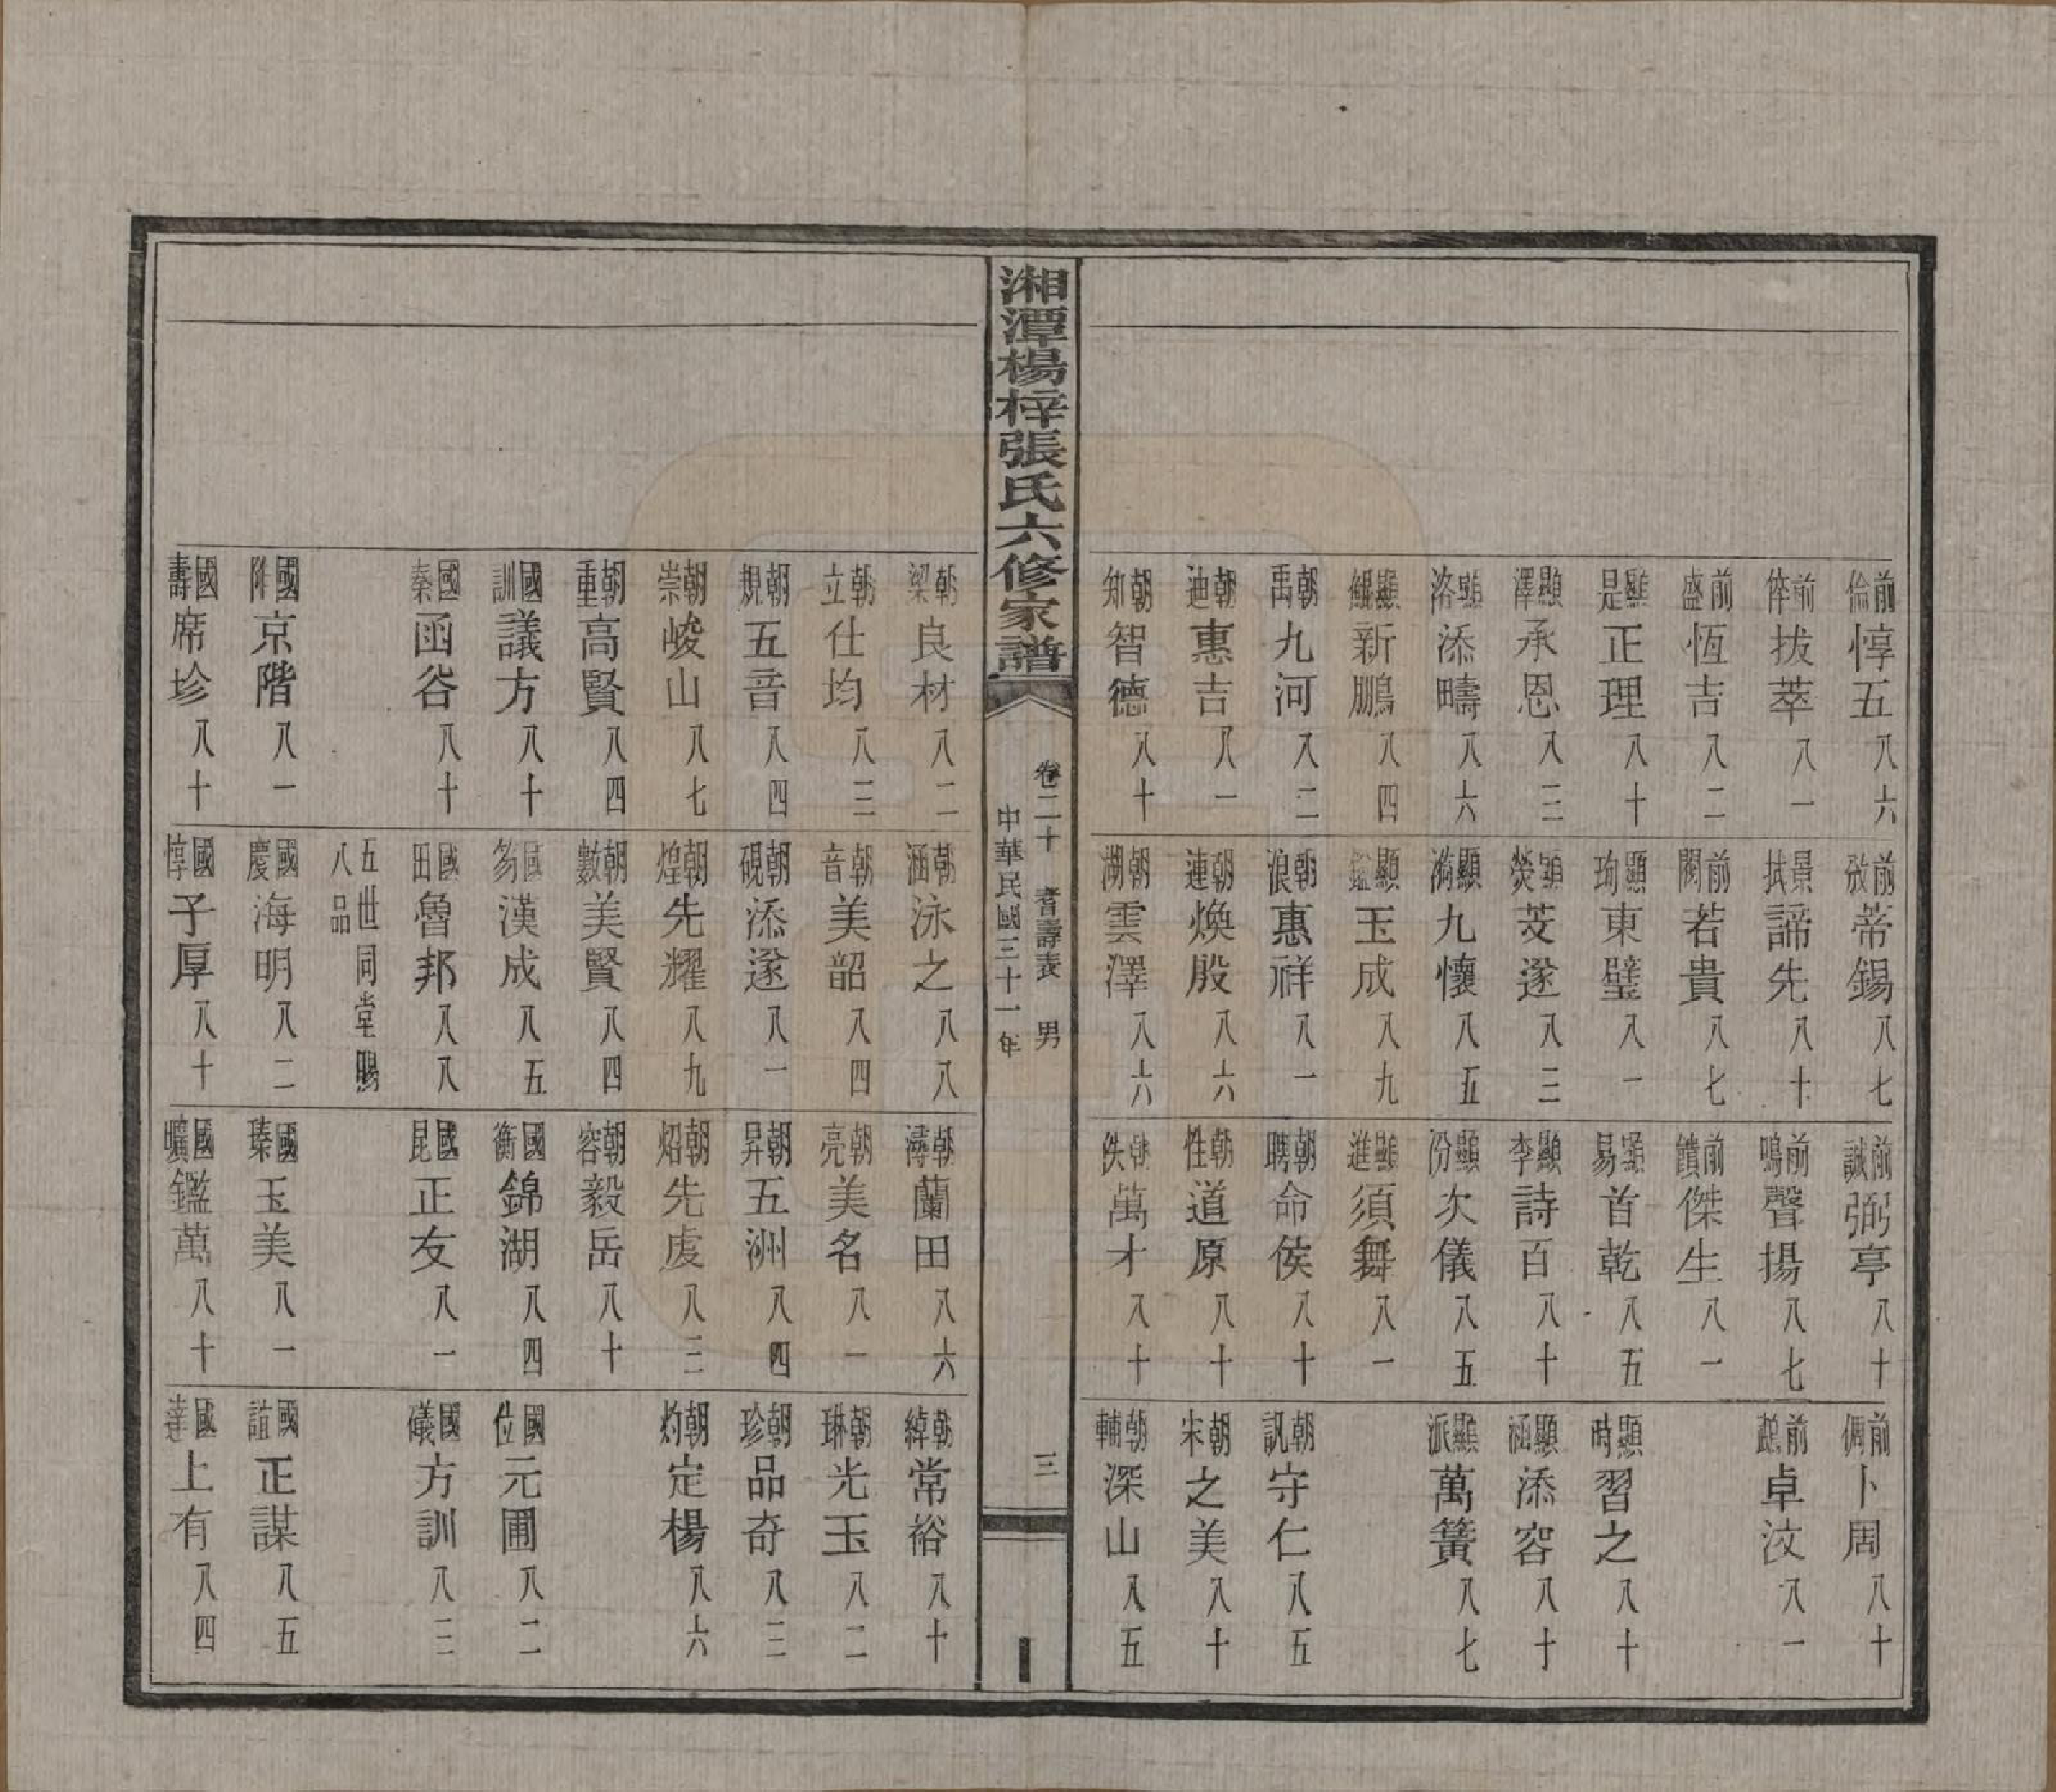 前倫惇五八六
前倅拔萃八一
前盛恆吉八二
顯是正理八十
顯澤承恩八三
顯洛添疇八六
顯鯤新鵬八四
朝禹九河八二
朝迪惠吉八一
朝知智德八十
前攽蒂錫八七
景拭諦先八十
前閣若貴八七
顯珣東璧八一
顯熒茭遂八三
顯漪九懷八五
顯鑑玉成八九
朝浪惠祥八一
朝連煥殷八六
朝湖雲澤八六
前誠弼亭八十
前鳴聲揚八七
前饋傑生八一
顯易首乾八五
顯李詩百八十
顯份次儀八五
顯進須舞八一
朝聘命侯八十
朝性道原八十
朝佚萬才八十
前倜卜周八十
前趨卓汶八一
顯時習之八十
顯涵添容八十
顯派萬簧八七
朝訊守仁八五
朝宋之美八十
朝輔深山八五
湘潭楊梓張氏六修家譜
卷二十 耆壽表 男
三
中華民國三十一年
朝梁良材八二
朝立仕均八三
朝規五音八四
朝崇峻山八七
朝重高賢八四
國訓議方八十
國秦函谷八十
國陛京階八一
國壽席珍八十
朝涵泳之八八
朝音美韶八四
朝硯添遂八一
朝煌先耀八九
朝數美賢八四
國芴漢成八五
國田魯邦八八
五世同堂賜
八品
國慶海明八二
國惇子厚八十
朝濤蘭田八六
朝亮美名八一
朝昇五洲八四
朝炤先虔八三
朝容毅岳八十
國衡錦湖八四
國昆正友八一
國瑧玉美八一
國曠鑑萬八十
朝綽常裕八十
朝琳光玉八二
朝珍品奇八三
朝灼定楊八六
國位元圃八二
國礒方訓八三
國誼正謀八五
國達上有八四